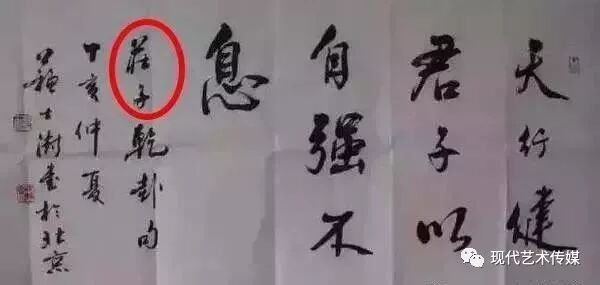 天行健
君子以
自强不
息
莊子乾卦句
丁亥仲夏
蘇士澍書於北京
现代艺术传媒